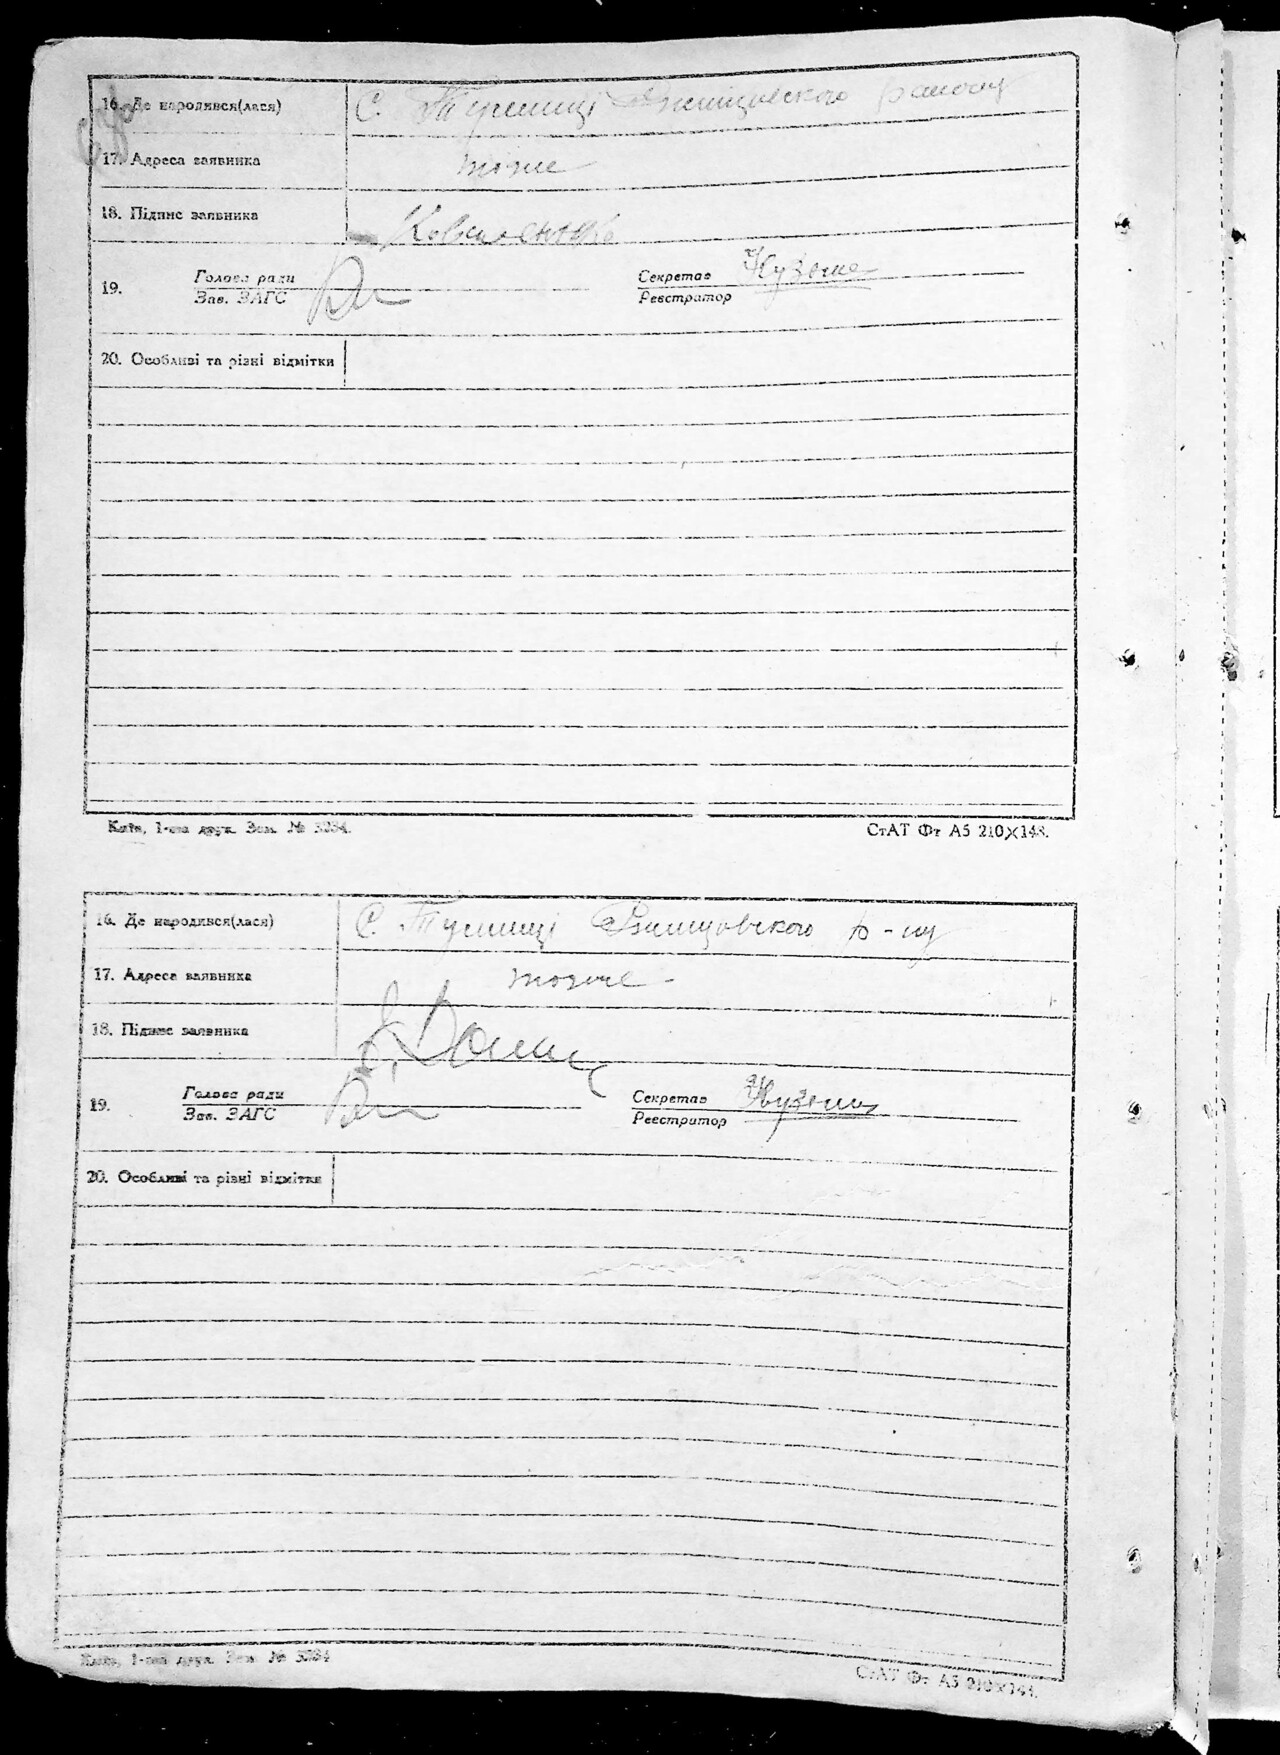 16. Де народився(лася) С. Тулинці Ржищівського району
17. Адреса заявника тоже
18. Підпис заявника Коваленко
19. Голова ради Секретар
Зав. ЗАГС Реєстратор
20. Особливі та різні відмітки
Київ, 1-ша друк. Зам. № 3284.
СтАТ Фт А5 210×148.
16. Де народився(лася) С. Тулинці Ржищовского р-ну
17. Адреса заявника тоже
18. Підпис заявника
19. Голова ради Секретар
Зав. ЗАГС Реєстратор
20. Особливі та різні відмітки
Київ, 1-ша друк. Зам. № 3284
СтАТ Фт А5 210×148.